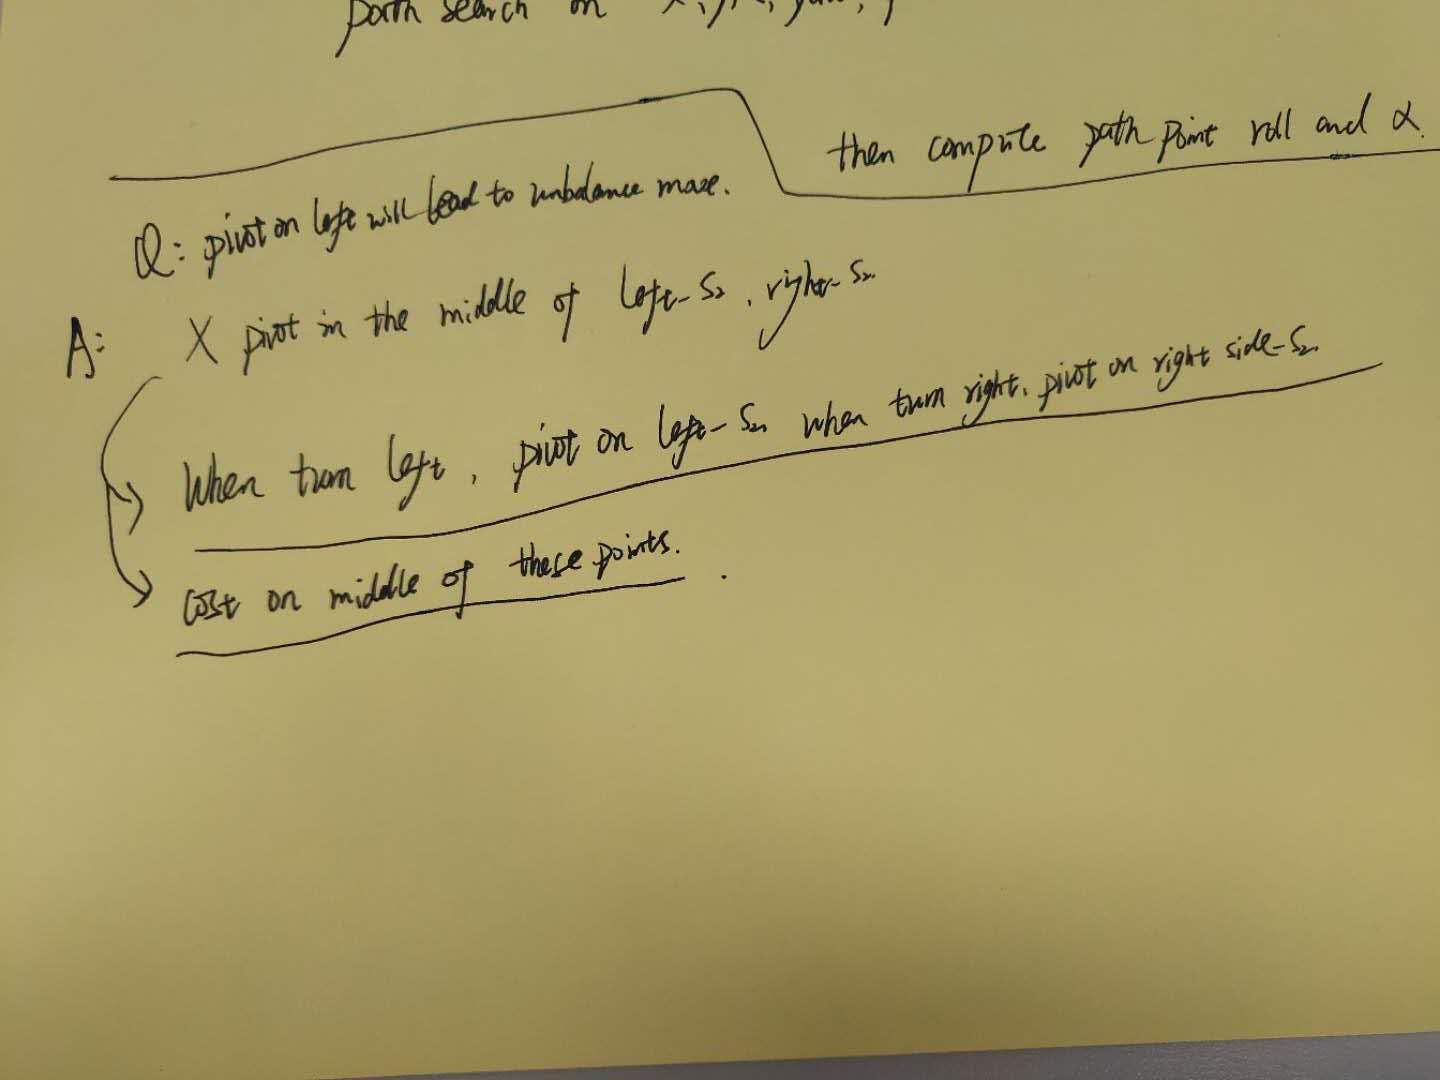 path search on x, y, z, yaw,
then compute path point roll and α.
Q: pivot on left will lead to unbalance maze.
A: X pivot in the middle of left-S2, right-S2.
When turn left, pivot on left-S2, when turn right, pivot on right side-S2.
Cost on middle of these points.